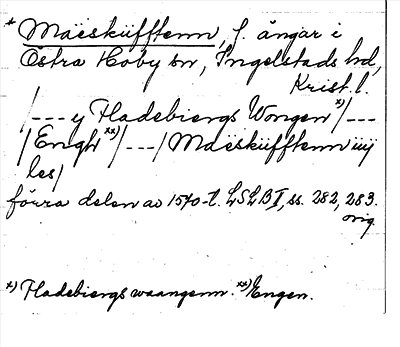 * Maëskiifftenn, f. ängar i
Östra Hoby sn, Ingelstads hd,
Krist. l.
/--- y Fladebiergs Wongen *)/---
/Engh **)/---/Maëskiifftenn iiij
les/
förra delen av 1540-t. LSLB I, ss. 282, 283.
orig.
*) Fladebiergs waangenn. **) Engen.